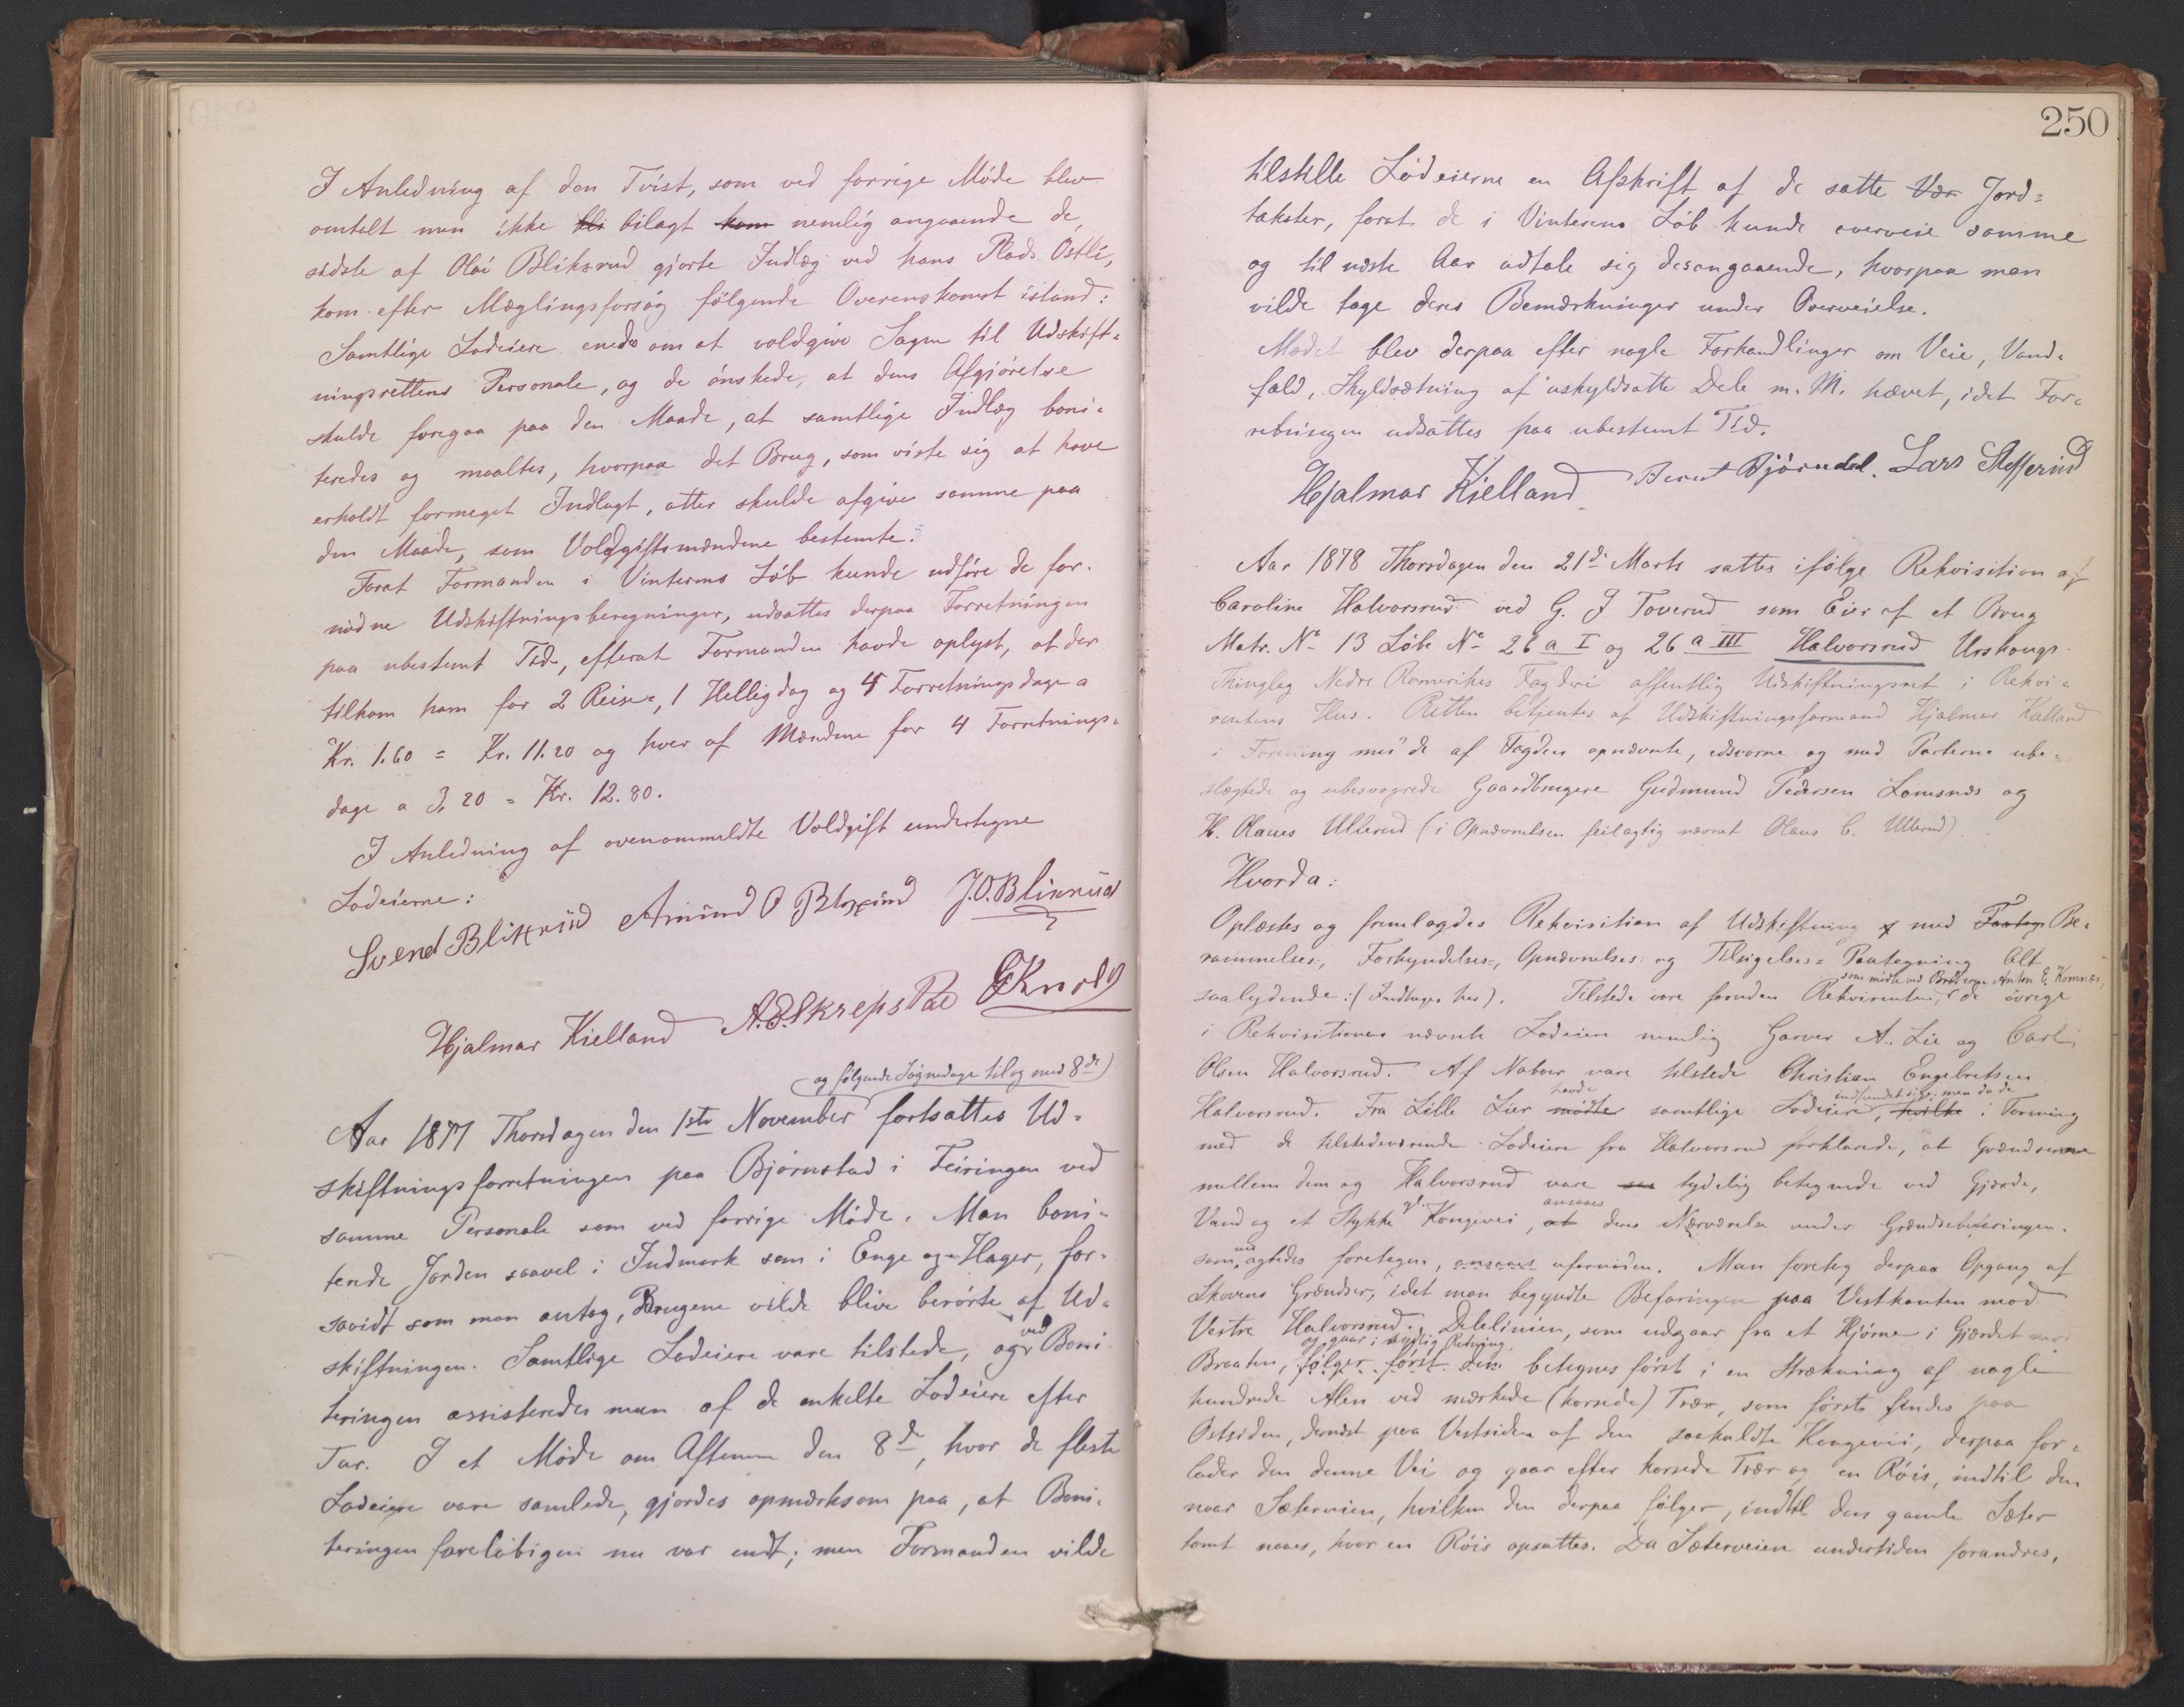 I Anledning af den Tvist, som ved forrige Møde blev
omtalt men ikke bli bilagt kom nemlig angaaende de
sidste af Olai Bliksrud gjorte Indlæg ved hans Plads Østli,
kom efter Mæglingsforsøg følgende Overenskomst istand:
Samtlige Lodeiere enedes om at voldgive Sagen til Udskift-
ningsrettens Personale, og de ønskede, at dens Afgjørelse
skulde foregaa paa den Maade, at samtlige Indlæg boni-
teredes og maaltes, hvorpaa det Brug, som viste sig at have
erholdt formeget Indlagt, atter skulde afgive samme paa
den Maade, som Voldgiftsmændene bestemte.
Forat Formanden i Vinterens Løb kunde udføre de for-
nødne Udskiftningsberegninger, udsattes derpaa Forretningen
paa ubestemt Tid, efterat Formanden havde oplyst, at der
tilkom ham for 2 Reise-, 1 Helligdag og 4 Forretningsdage a
Kr. 1.60 = Kr. 11.20 og hver af Mændene for 4 Forretnings-
dage a 3,20 = Kr. 12.80.
I Anledning af ovenommeldte Voldgift undertegne
Lodeierne:
Svend Blikrüd Amünd O Blixrüd J.O. Blixrüd
Hjalmar Kielland A.E. Skrepstad G Knold
(og følgende Søgnedage til og med 8de)
Aar 1877 Thorsdagen den 1ste November fortsattes Ud-
skiftningsforretningen paa Bjørnstad i Feiringen ved
samme Personale som ved forrige Møde. Man boni-
terede Jorden saavel i Indmark som i Enge og Hager, for-
savidt som man antog, Brugene vilde blive berørte af Ud-
skiftningen. Samtlige Lodeiere vare tilstede, og ved Boni-
teringen assisteredes man af de enkelte Lodeiere efter
Tur. I et Møde om Aftenen den 8de, hvor de fleste
Lodeiere vare samlede, gjordes opmærksom paa, at Boni-
teringen foreløbigen nu var endt; men Formanden vilde
250
tilstille Lodeierne en Afskrift af de satte Vær Jord-
takster, forat de i Vinterens Løb kunde overveie samme
og til næste Aar udtale sig desangaaende, hvorpaa man
vilde tage deres Bemærkninger under Overveielse.
Mødet blev derpaa efter nogle Forhandlinger om Veie, Vand-
fald, Skyldsætning af uskyldsatte Dele m. M. hævet, idet For-
retningen udsattes paa ubestemt Tid.
Hjalmar Kielland Bernt Bjørndal. Lars Steffensrud
Aar 1878 Thorsdagen den 21de Marts sattes ifølge Rekvisition af
Caroline Halvorsrud ved G. J Toverud som Eier af et Brug
Matr. No 13 Løbe No 26 a I og 26 a III Halvorsrud Urskougs
Thinglag Nedre Romerikes Fogderi offentlig Udskiftningsret i Rekvi-
rentens Hus. Retten betjentes af Udskiftningsformand Hjalmar Kielland
i Forening med de af Fogden opnævnte, edsvorne og med Parterne ube-
slægtede og ubesvogrede Gaardbrugere Gudmund Pedersen Lomsnæs og
H. Olaves Ullerud (i Opnævnelsen feilagtig nævnt Olaus C. Ullerud).
Hvorda:
Oplæstes og fremlagdes Rekvisition af Udskiftning med Be-
rammelses-, Forkyndelses-, Opnævnelses- og Tilsigelses-Paategning Alt
som mødte ved Broderen Anton E. Komnæs,
saalydende: (Indtages her). Tilstede vare foruden Rekvirenten, de øvrige
i Rekvisitionen nævnte Lodeiere nemlig Garver A. Lie og Carl
Olsen Halvorsrud. Af Naboer vare tilstede Christian Engebretsen
havde indfundet sig, men da de
Halvorsrud. Fra Lille Lier mødter samtlige Lodeiere, hvilke i Forening
med de tilstedeværende Lodeiere fra Halvorsrud forklarede, at Grændserne
mellem dem og Halvorsrud vare saa tydelig betegnede ved Gjærde,
gl. ansaaes
Vand og et Stykke Kongevei, at deres Nærværelse under Grændsebefaringen.
som nu agtedes foretagen, ansaaes ufornøden. Man foretog derpaa Opgang af
Skovens Grændser, idet man begyndte Befaringen paa Vestkanten mod
Vestre Halvorsrud. Delelinien, som udgaar fra et Hjørne i Gjærdet mod
og gaar i sydlig Retning.
Braaten, følger først den betegnes først i en Strækning af nogle
hundrede Alen ved mærkede (korsede) Trær, som først findes paa
Østsiden, dernæst paa Vestsiden af den saakaldte Kongevei, derpaa for-
lader den denne Vei og gaar efter korsede Trær og en Røis, indtil den
naar Sæterveien, hvilken den derpaa følger, indtil den gamle Sæter-
tomt naaes, hvor en Røis opsattes. Da Sæterveien undertiden forandres,